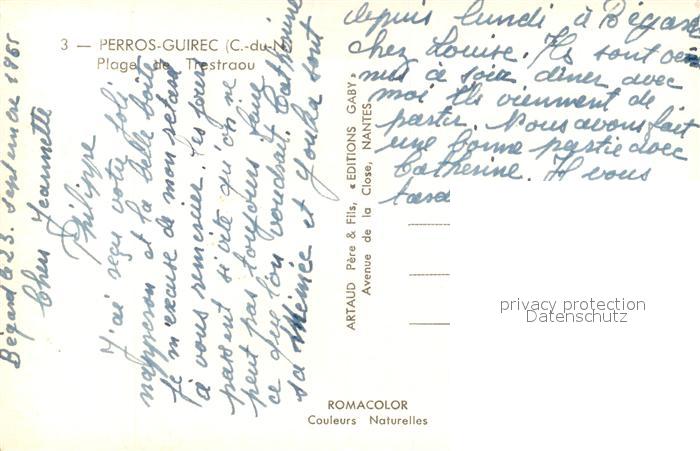 3 — PERROS-GUIREC (C.-du-N.)
Plage de Trestraou
Bégard le 23 septembre 1965
Chers Jeannette
Philippe
J'ai reçu votre joli
napperon et la belle boîte
je m'excuse de mon retard
à vous remercier. Les jours
passent si vite qu'on ne
peut pas toujours faire
ce que l'on voudrait. Catherine
sa Mémée et sont
depuis lundi à Bégard
chez Louise. Ils sont ve
nus ce soir diner avec
moi ils viennent de
partir. Nous avons fait
une bonne partie avec
Catherine. Il vous
ARTAUD Père & Fils, «EDITIONS GABY»
Avenue de la Close, NANTES
privacy protection
Datenschutz
ROMACOLOR
Couleurs Naturelles